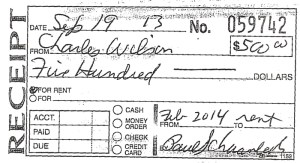 RECEIPT
DATE Sep 19 13 No. 059742
FROM Charles Wilson $500.00
Five Hundred DOLLARS
FOR RENT
FOR
ACCT.
PAID
DUE
CASH
MONEY ORDER
CHECK
CREDIT CARD
Feb 2014 rent
FROM TO
1182